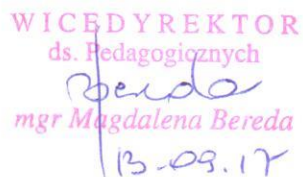 WICEDYREKTOR
ds. Pedagogicznych
Bereda
mgr Magdalena Bereda
13-09.17